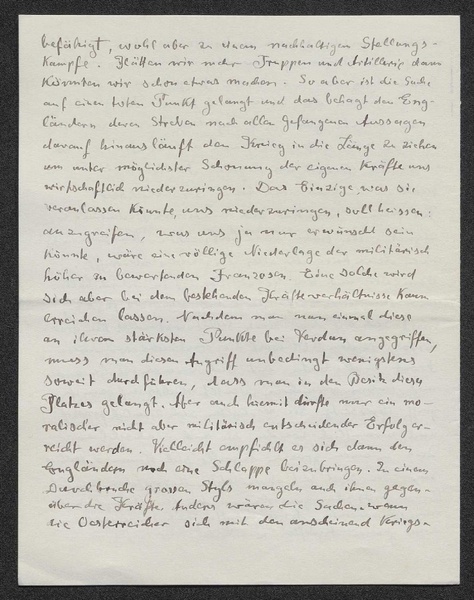 befähigt, wohl aber zu einem nachhaltigen Stellungs-
kampfe. Hätten wir mehr Truppen und Artillerie dann
könnten wir schon etwas machen. So aber ist die Sache
auf einen toten Punkt gelangt und das behagt den Eng-
ländern deren Streben nach allen Gefangenen Aussagen
darauf hinaus läuft den Krieg in die Länge zu ziehen
um unter möglichster Schonung der eigenen Kräfte uns
wirtschaftlich niederzuringen. Das Einzige was sie
veranlassen könnte, uns niederzuringen, soll heissen:
anzugreifen, was uns ja nur erwünscht sein
könnte, wäre eine völlige Niederlage der militärisch
höher zu bewertenden Franzosen. Eine solche wird
sich aber bei dem bestehenden Kräfteverhältnisse kaum
erreichen lassen. Nachdem man nun einmal diese
an ihrem stärksten Punkte bei Verdun angegriffen,
muss man diesen Angriff unbedingt wenigstens
soweit durchführen, dass man in den Besitz dieses
Platzes gelangt. Aber auch hiemit dürfte nur ein mo-
ralischer nicht aber militärisch entscheidender Erfolg er-
reicht werden. Vielleicht empfiehlt es sich dann den
Engländern noch eine Schlappe beizubringen. Zu einem
Durchbruche grossen Styls mangeln auch ihnen gegen-
über die Kräfte. Anders wären die Sachen wenn
die Oesterreicher sich mit den anscheinend kriegs-